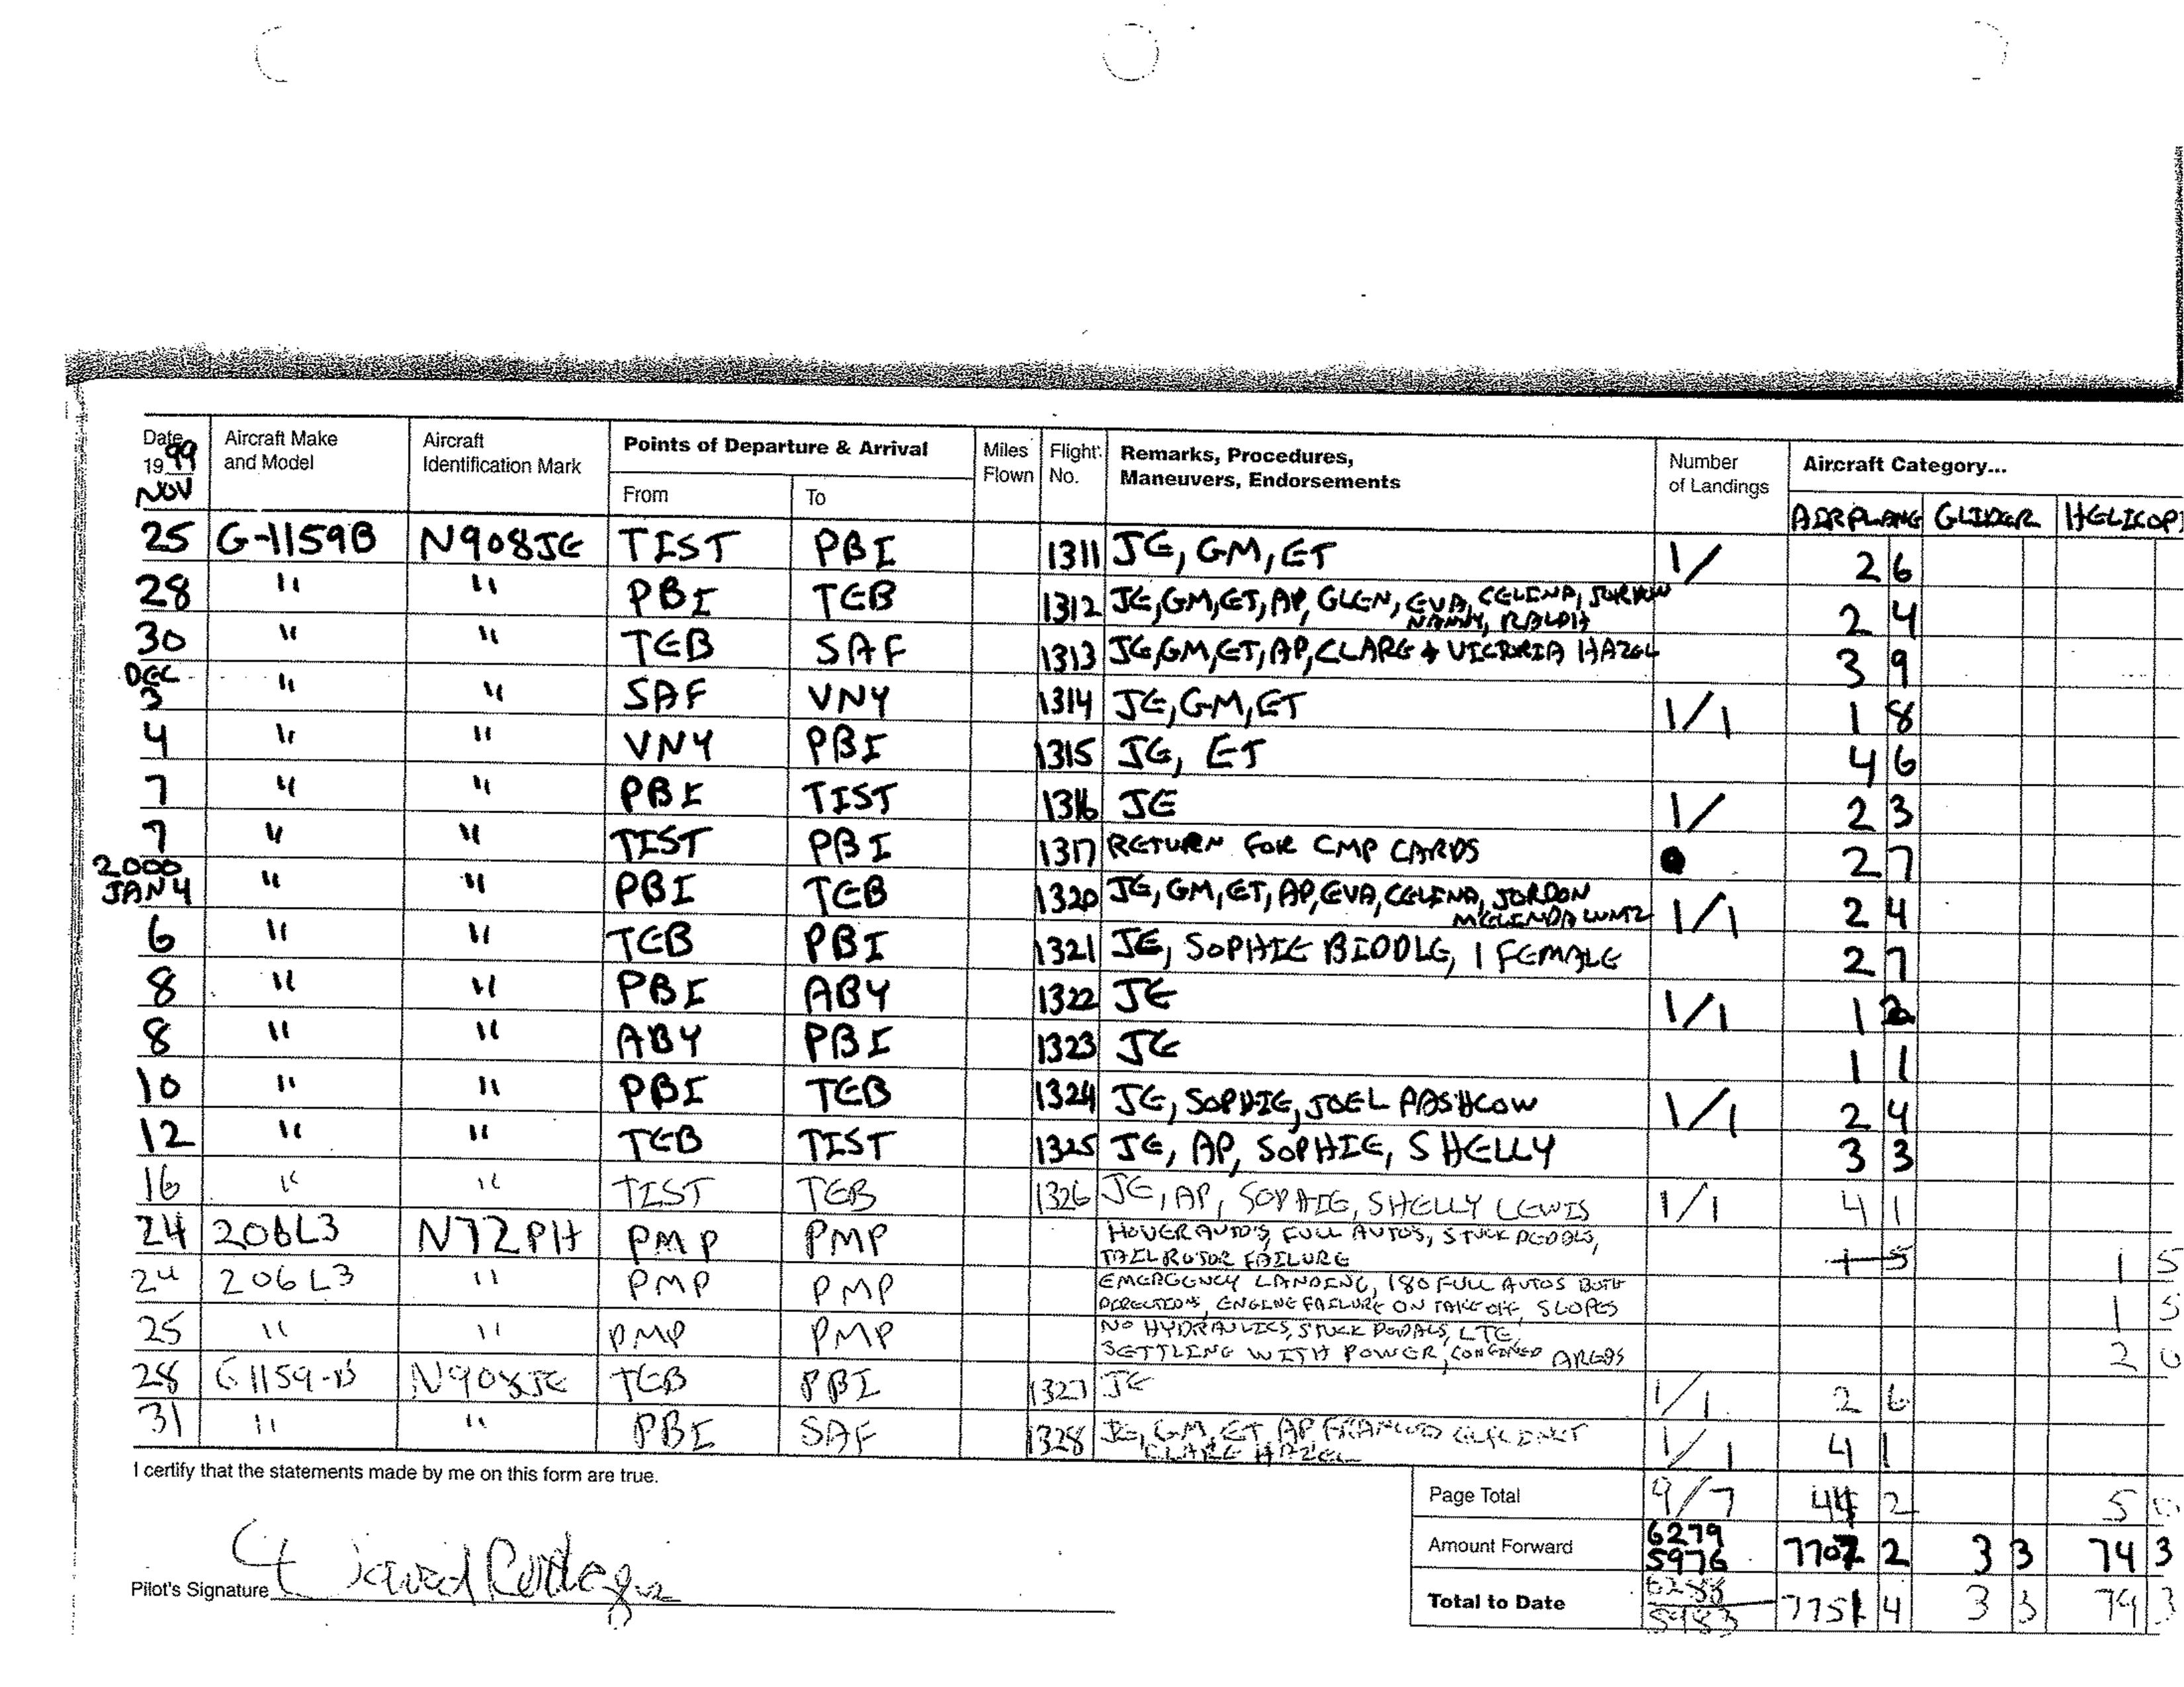 Date Aircraft Make Aircraft Points of Departure & Arrival Miles Flight Remarks, Procedures, Number Aircraft Category...
1999 and Model Identification Mark Flown No. Maneuvers, Endorsements of Landings
NOV From To AIRPLANE GLIDER HELICOP
25 G-1159B N908JE TIST PBI 1311 JE, GM, ET 1/ 2 6
28 " " PBI TEB 1312 JE, GM, ET, AP, GLEN, EVA, CELINA, JORDON 2 4
NANNY, RALPH
30 " " TEB SAF 1313 JE, GM, ET, AP, CLARE & VICTORIA HAZEL 3 9
DEC
3 " " SAF VNY 1314 JE, GM, ET 1/1 1 8
4 " " VNY PBI 1315 JE, ET 4 6
7 " " PBI TIST 1316 JE 1/ 2 3
7 " " TIST PBI 1317 RETURN FOR CMP CARDS 2 7
2000
JAN 4 " " PBI TEB 1320 JE, GM, ET, AP, EVA, CELINA, JORDON 1/1 2 4
MELINDA LUNTZ
6 " " TEB PBI 1321 JE, SOPHIE BIDDLE, 1 FEMALE 2 7
8 " " PBI ABY 1322 JE 1/1 1 2
8 " " ABY PBI 1323 JE 1 1
10 " " PBI TEB 1324 JE, SOPHIE, JOEL PASHCOW 1/1 2 4
12 " " TEB TIST 1325 JE, AP, SOPHIE, SHELLY 3 3
16 " " TIST TEB 1326 JE, AP, SOPHIE, SHELLY LEWIS 1/1 4 1
24 206L3 N72PH PMP PMP HOVER AUTO'S, FULL AUTOS, STUCK PEDALS,
TAIL ROTOR FAILURE 1 5 1 5
24 206L3 " PMP PMP EMERGENCY LANDING, 180 FULL AUTOS BOTH
DIRECTIONS, ENGINE FAILURE ON TAKE OFF, SLOPES 1 5
25 " " PMP PMP NO HYDRAULICS, STUCK PEDALS, LTE,
SETTLING WITH POWER, CONFINED AREAS 2 0
28 G1159-B N908JE TEB PBI 1327 JE 1/1 2 6
31 " " PBI SAF 1328 JE, GM, ET, AP, 1/1 4 1
CLARE HAZEL
I certify that the statements made by me on this form are true.
Page Total 9/7 44 2 5 0
Amount Forward 6279 5976 7707 2 3 3 74 3
Pilot's Signature David Rodgers
Total to Date 6288 5983 7751 4 3 3 79 3